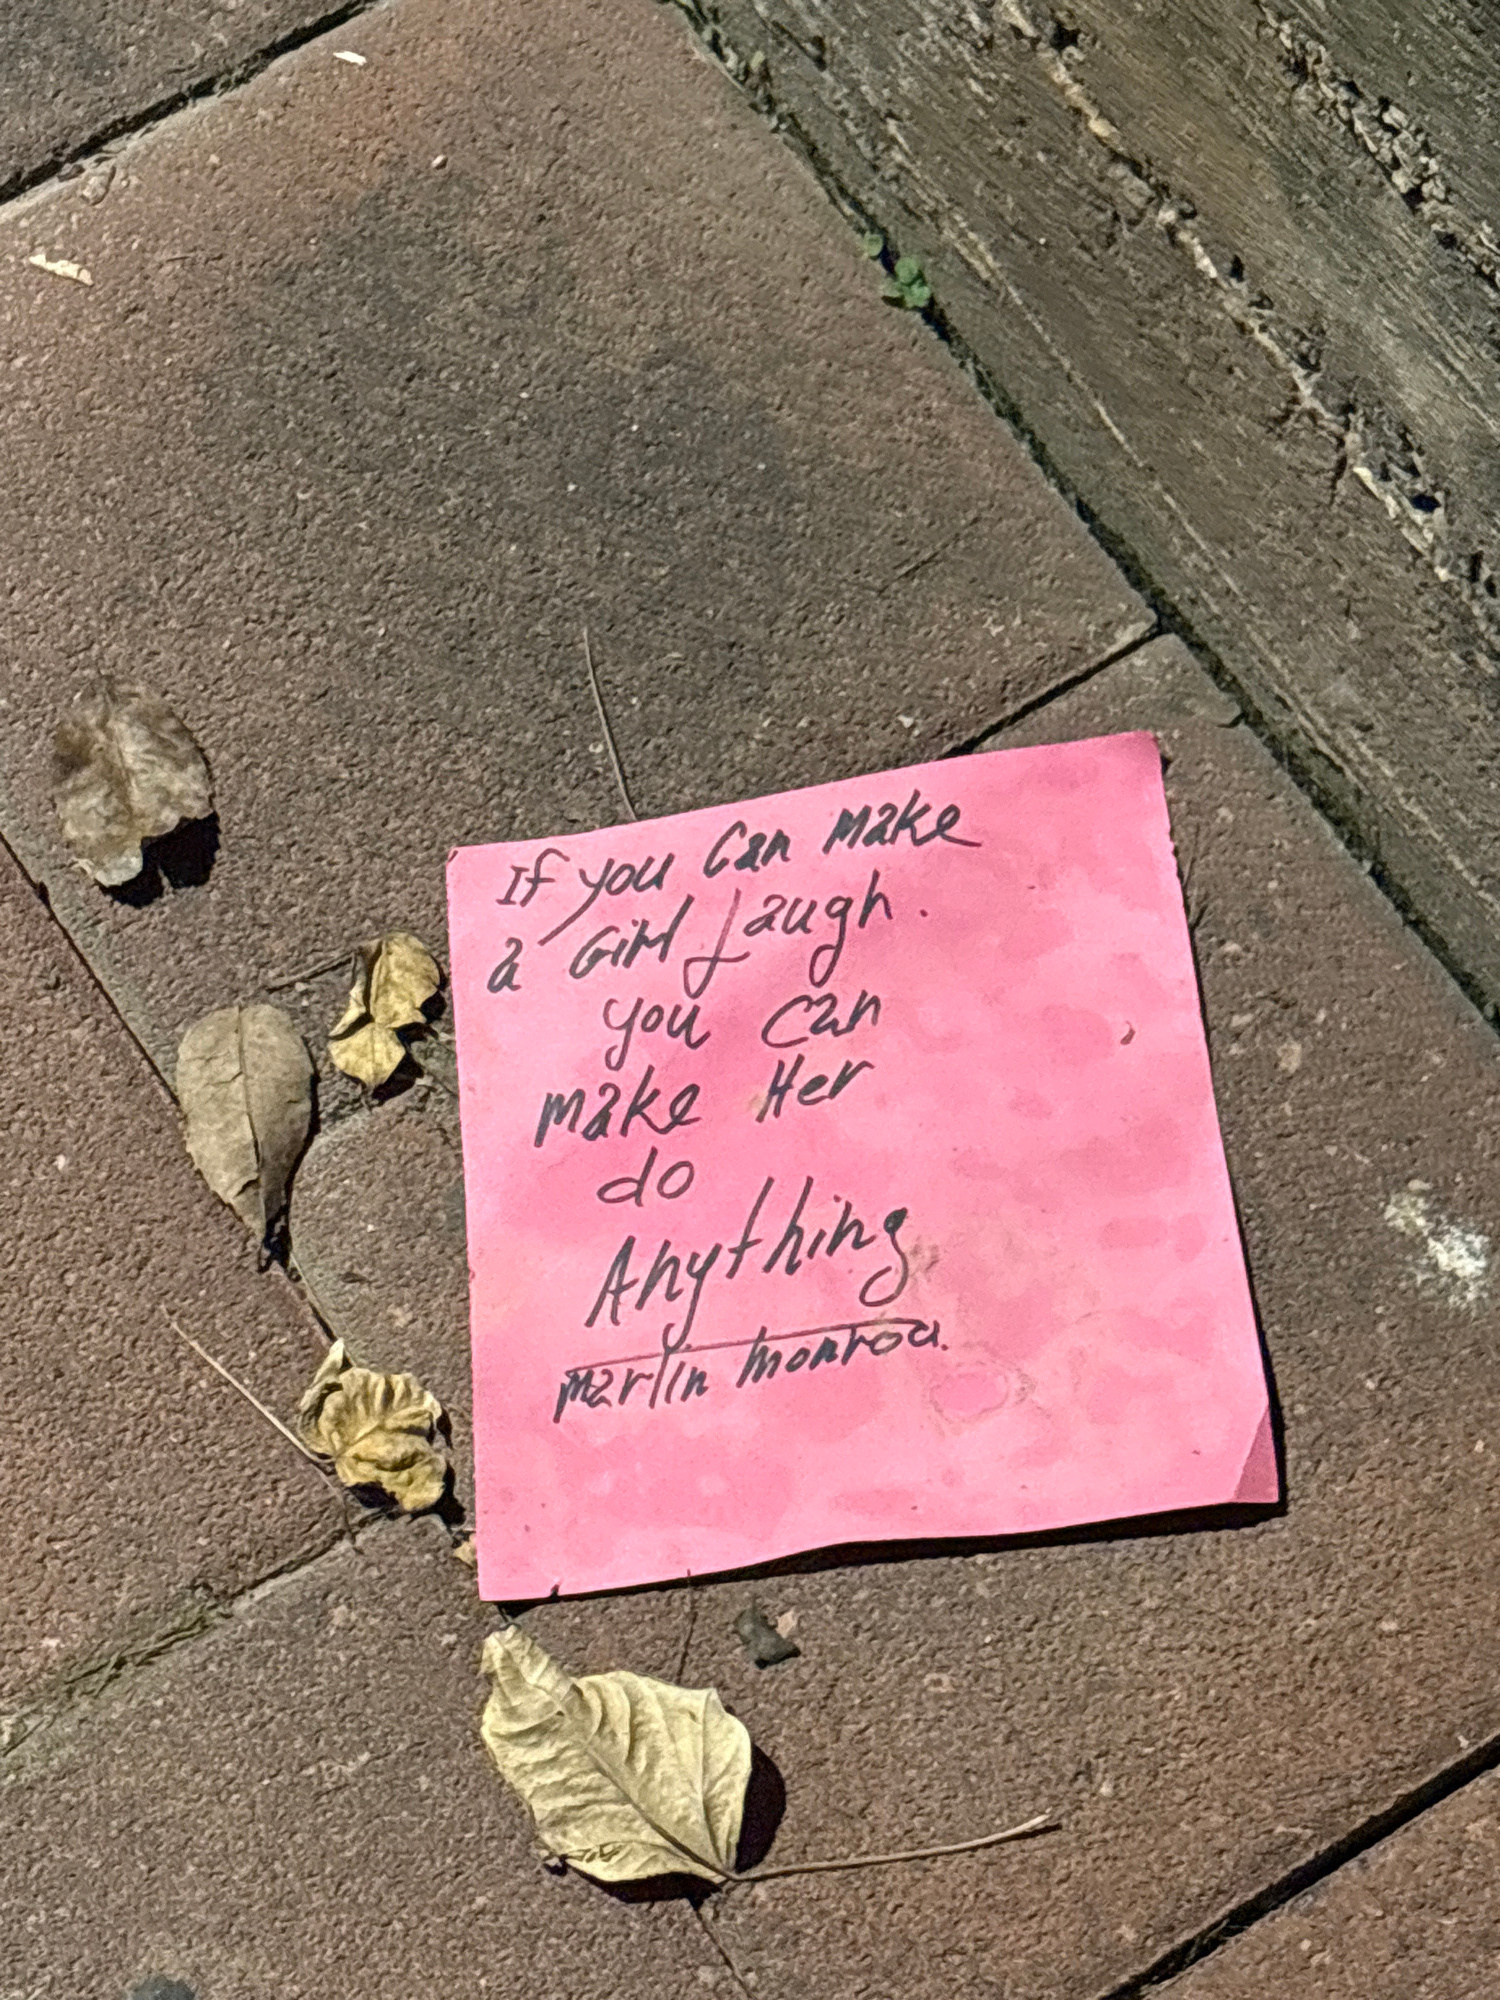 If you can make
a Girl Laugh.
you can
make Her
do
Anything
marlin monroa.